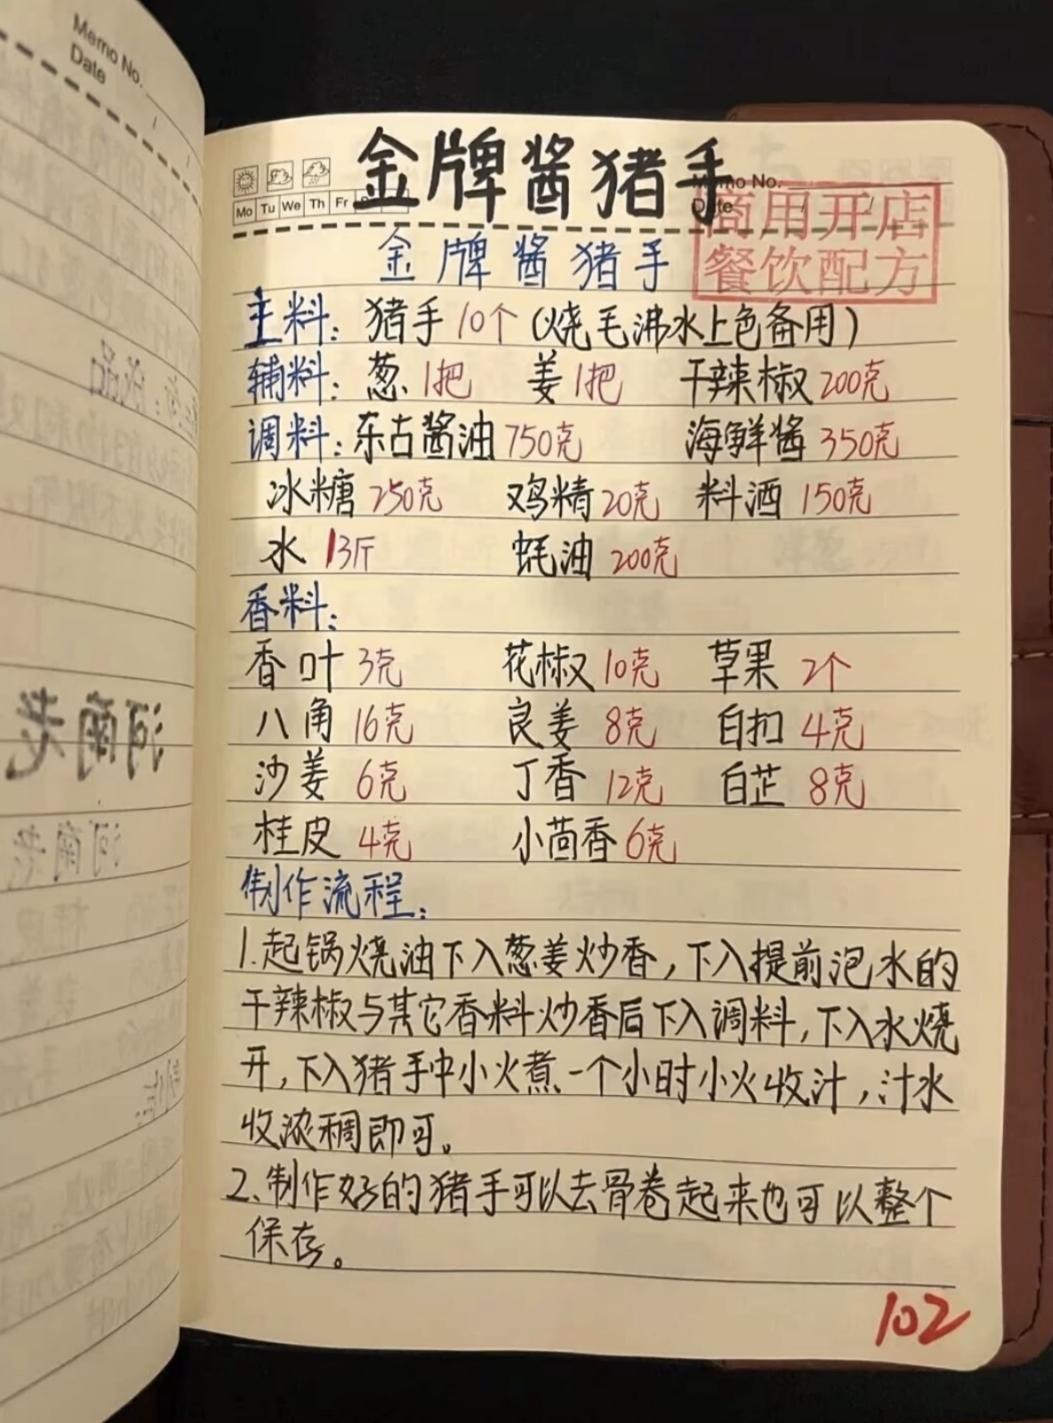 Memo No.
Date
金牌酱猪手
Memo No.
Date
Mo Tu We Th Fr
商用开店
餐饮配方
金牌酱猪手
主料：猪手10个（烧毛沸水上色备用）
辅料：葱1把 姜1把 干辣椒200克
调料：东古酱油750克 海鲜酱350克
冰糖250克 鸡精20克 料酒150克
水13斤 蚝油200克
香料：
香叶3克 花椒10克 草果2个
八角16克 良姜8克 白扣4克
沙姜6克 丁香12克 白芷8克
桂皮4克 小茴香6克
制作流程：
1.起锅烧油下入葱姜炒香，下入提前泡水的
干辣椒与其它香料炒香后下入调料，下入水烧
开，下入猪手中小火煮一个小时小火收汁，汁水
收浓稠即可。
2、制作好的猪手可以去骨卷起来也可以整个
保存。
102